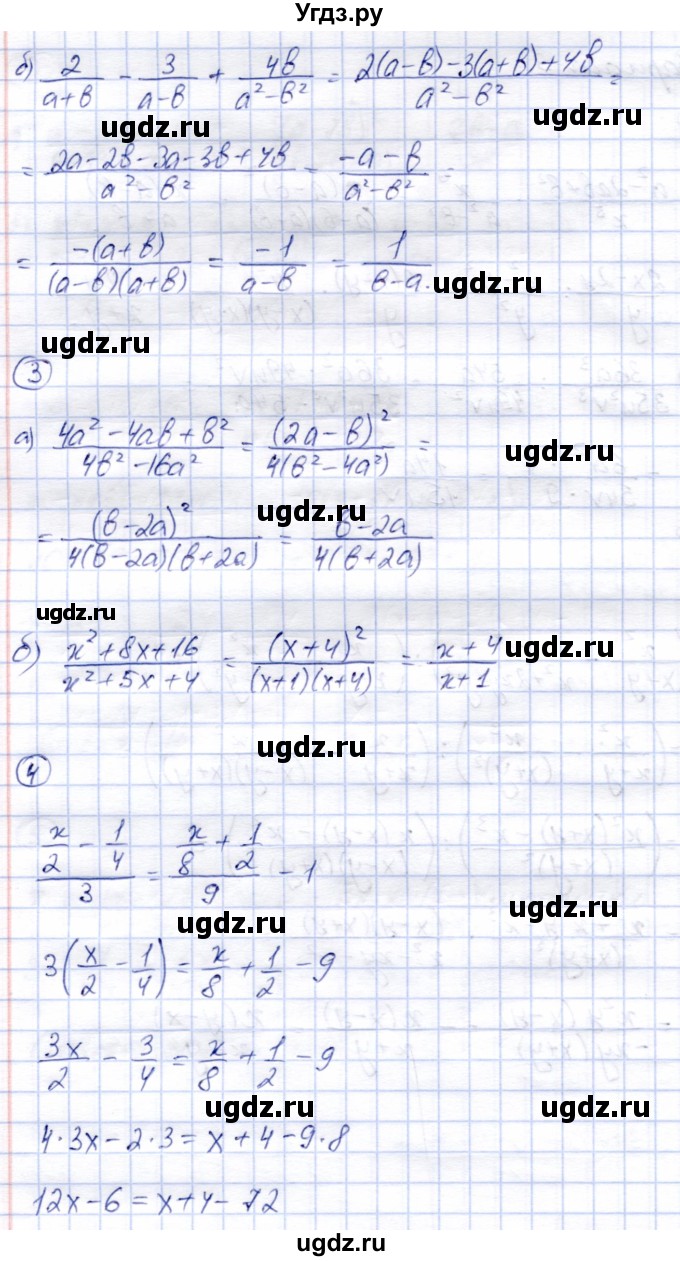 Угдз.ру
б) 2/(a+b) - 3/(a-b) + 4b/(a²-b²) = (2(a-b)-3(a+b)+4b)/(a²-b²) =
ugdz.ru ugdz.ru
= (2a-2b-3a-3b+4b)/(a²-b²) = (-a-b)/(a²-b²) =
ugdz.ru ugdz.ru
= -(a+b)/((a-b)(a+b)) = -1/(a-b) = 1/(b-a).
ugdz.ru
ugdz.ru
3
а) (4a²-4ab+b²)/(4b²-16a²) = (2a-b)²/(4(b²-4a²)) =
ugdz.ru
ugdz.ru
= (b-2a)²/(4(b-2a)(b+2a)) = (b-2a)/(4(b+2a))
ugdz.ru
б) (x²+8x+16)/(x²+5x+4) = (x+4)²/((x+1)(x+4)) = (x+4)/(x+1)
ugdz.ru
ugdz.ru
4
(x/2 - 1/4)/3 = (x/8 + 1/2)/9 - 1
ugdz.ru ugdz.ru
3(x/2 - 1/4) = x/8 + 1/2 - 9
3x/2 - 3/4 = x/8 + 1/2 - 9
ugdz.ru ugdz.ru
4·3x-2·3=x+4-9·8
12x-6=x+4-72
ugdz.ru